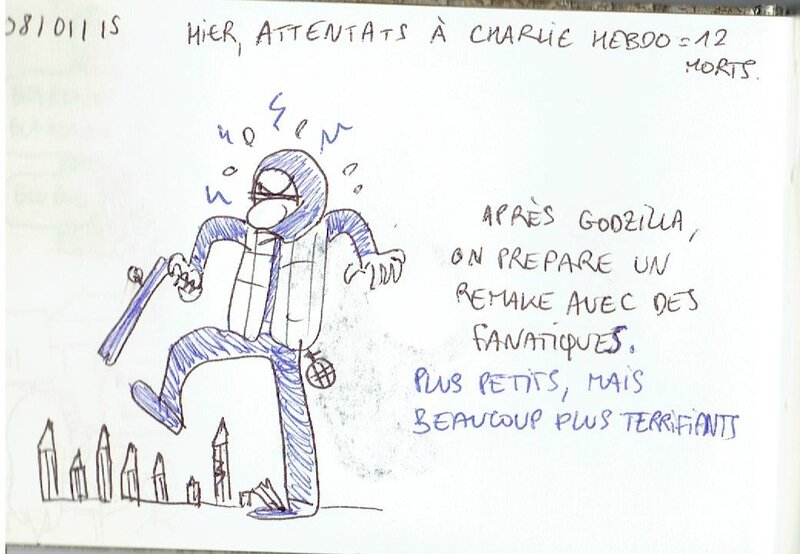 08/01/15
HIER, ATTENTATS À CHARLIE HEBDO = 12
MORTS.
APRÈS GODZILLA,
ON PREPARE UN
REMAKE AVEC DES
FANATIQUES.
PLUS PETITS, MAIS
BEAUCOUP PLUS TERRIFIANTS